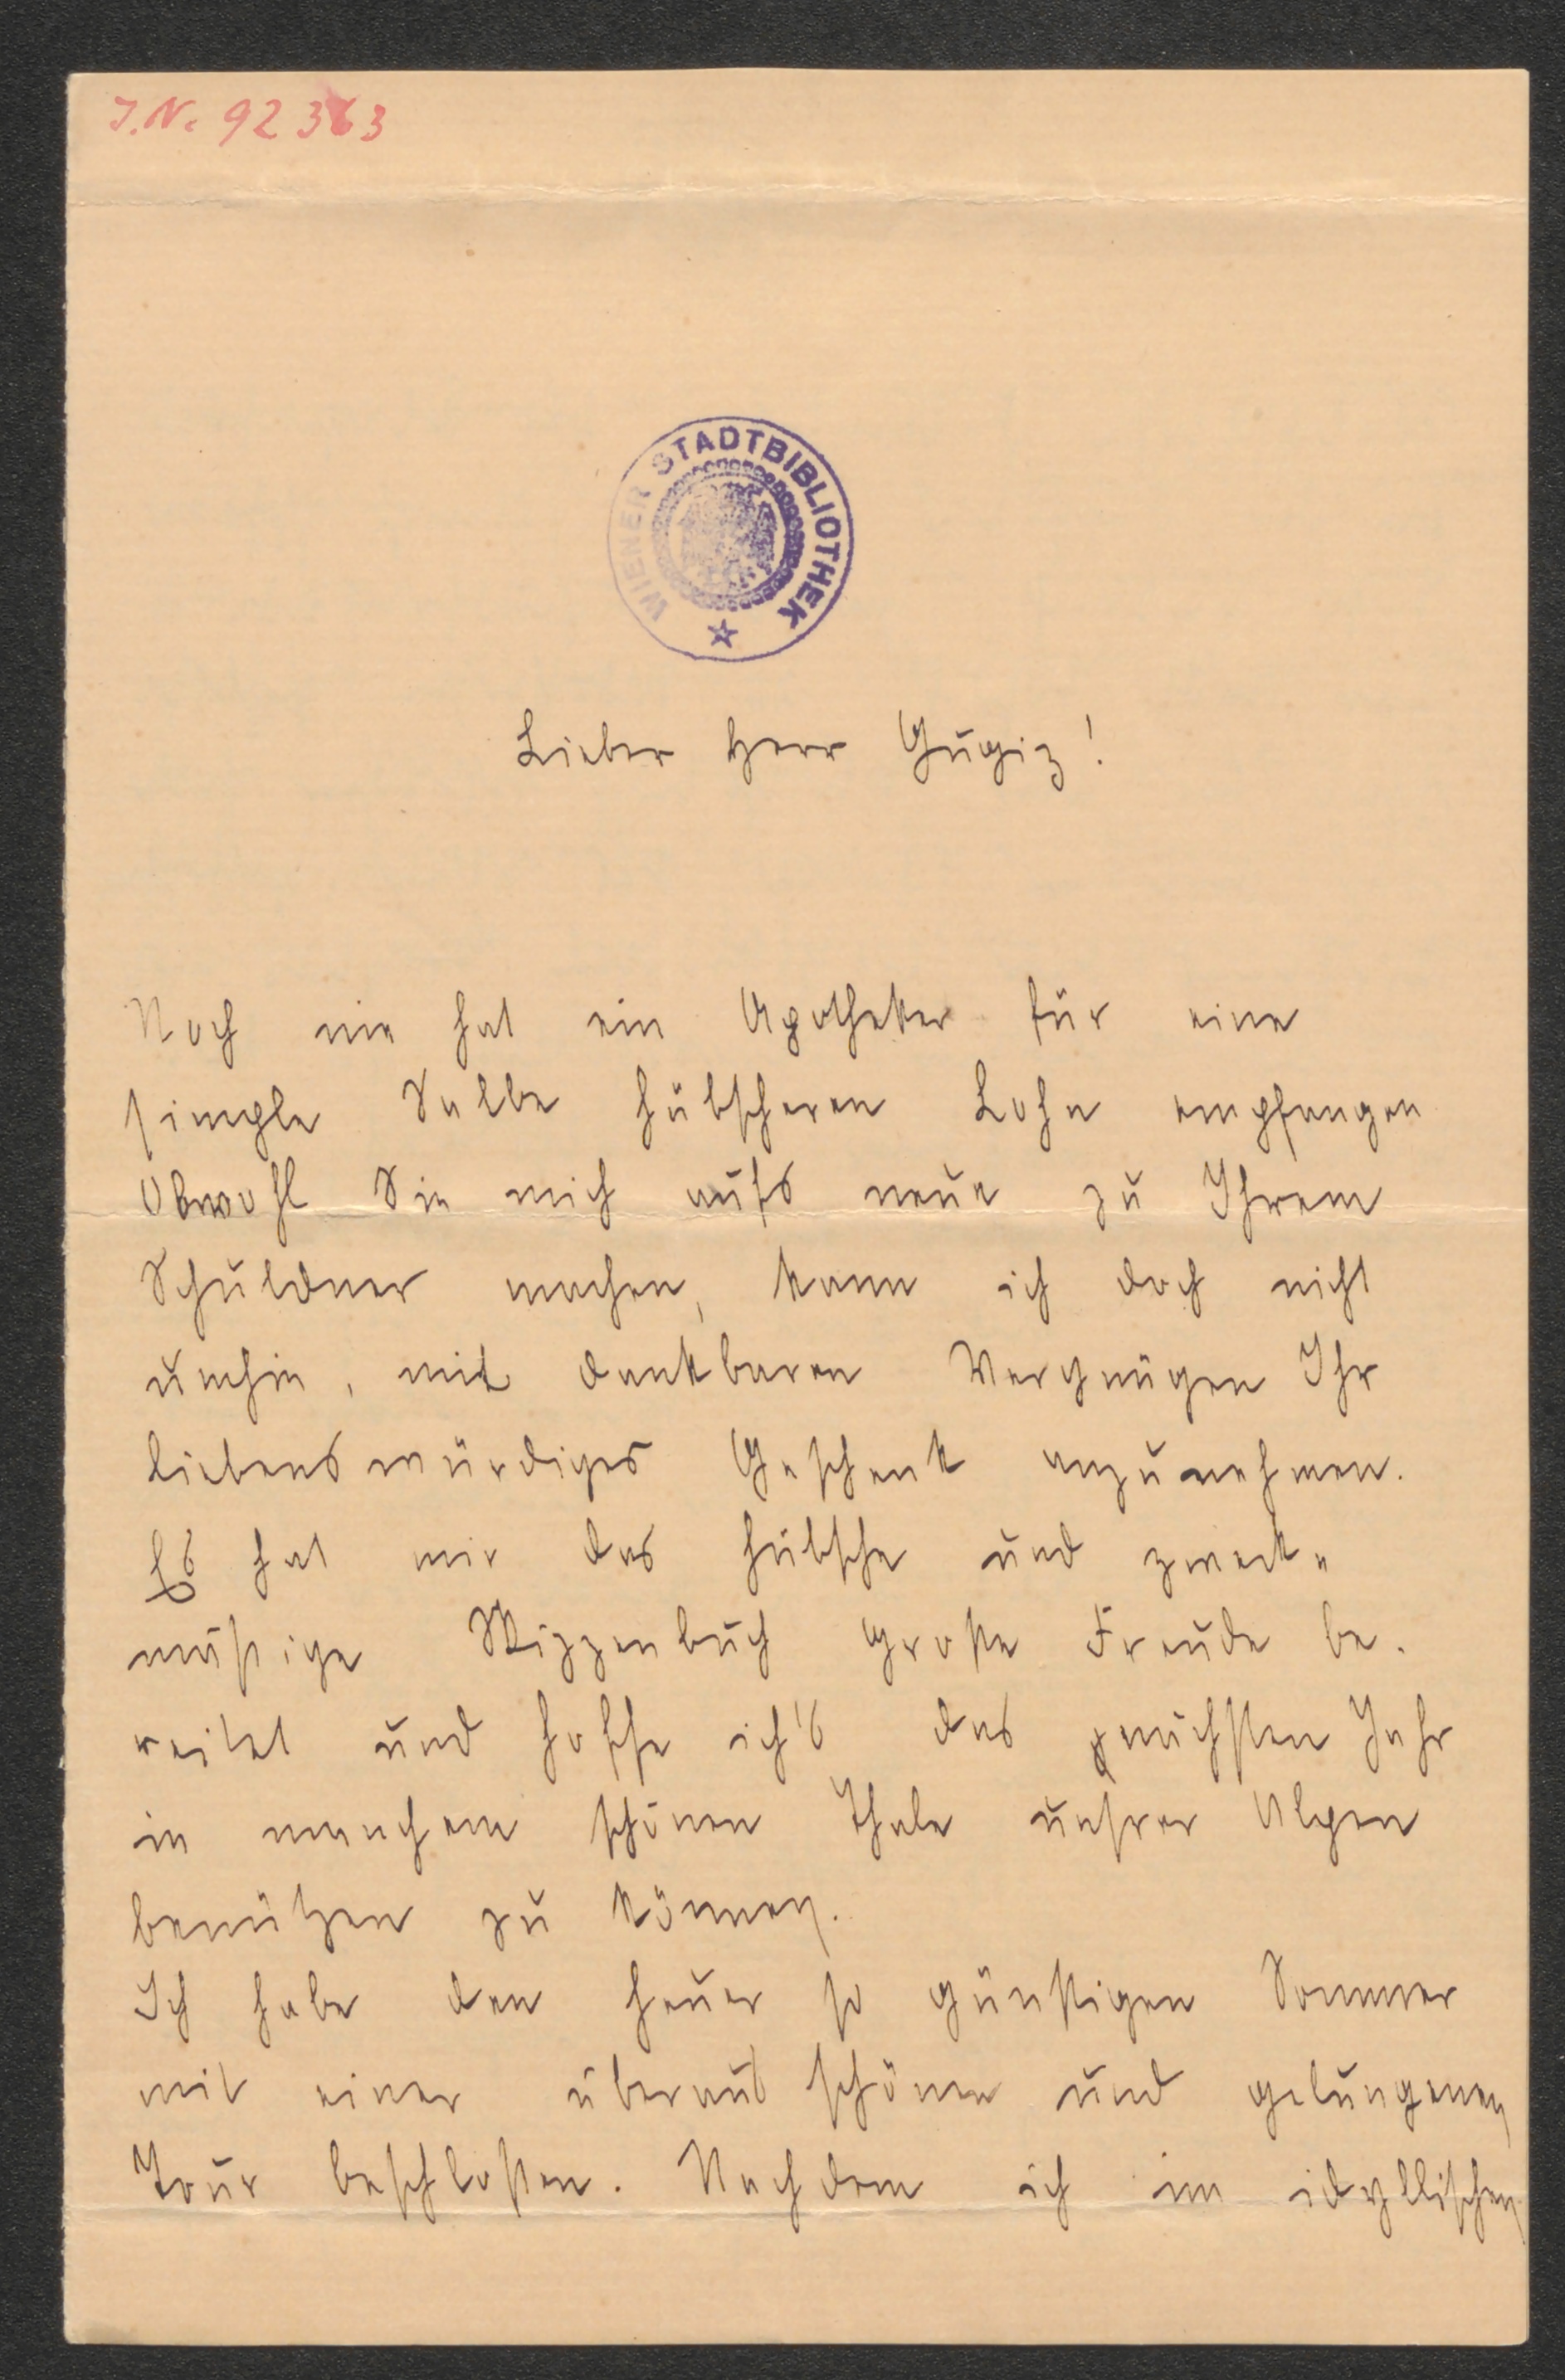 J.N. 92363
WIENER STADTBIBLIOTHEK
Lieber Herr Gugiz!
Noch nie hat ein Apotheker für eine
simple Salbe hübscheren Lohn empfangen
Obwohl Sie mich aufs neue zu Ihrem
Schuldner machen, kann ich doch nicht
umhin, mit dankbaren Vergnügen Ihr
liebenswürdiges Geschenk anzunehmen.
Es hat mir das hübsche und zweck„
mäßige Skizzenbuch große Freude be-
reitet und hoffe ich's das nächsten Jahr
in manchem schönen Thale unsrer Alpen
benützen zu können.
Ich habe den heuer so günstigen Sommer
mit einer überaus schönen und gelungenen
Tour beschloßen. Nachdem ich im idyllischen